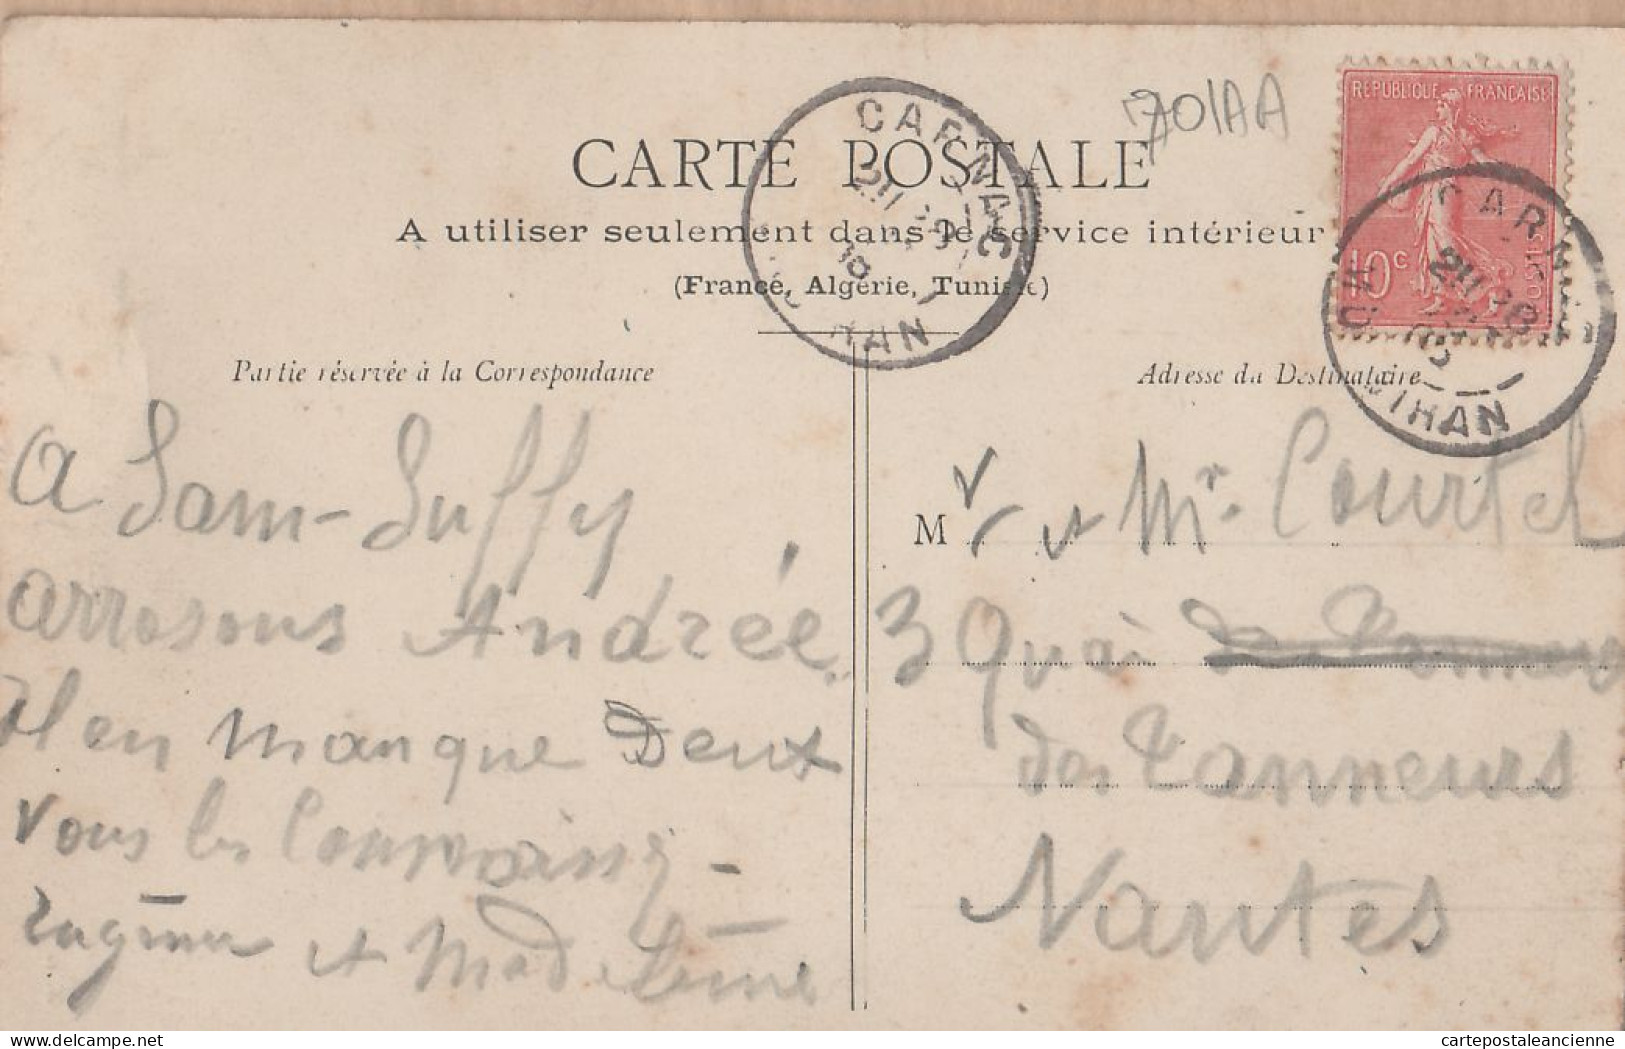 701AA
CARTE POSTALE
A utiliser seulement dans le service intérieur
(France, Algérie, Tunisie)
REPUBLIQUE FRANÇAISE
10c
POSTES
CARNAC
CARNAC
Partie réservée à la Correspondance
Adresse du Destinataire
a Sam-Suffy
arrosons Andrée.
il en manque Deux
vous les connaissez -
et Madeleine
M r et Mr. Courtel
3 Quai
des Tanneurs
Nantes
delcampe.net
cartepostaleancienne